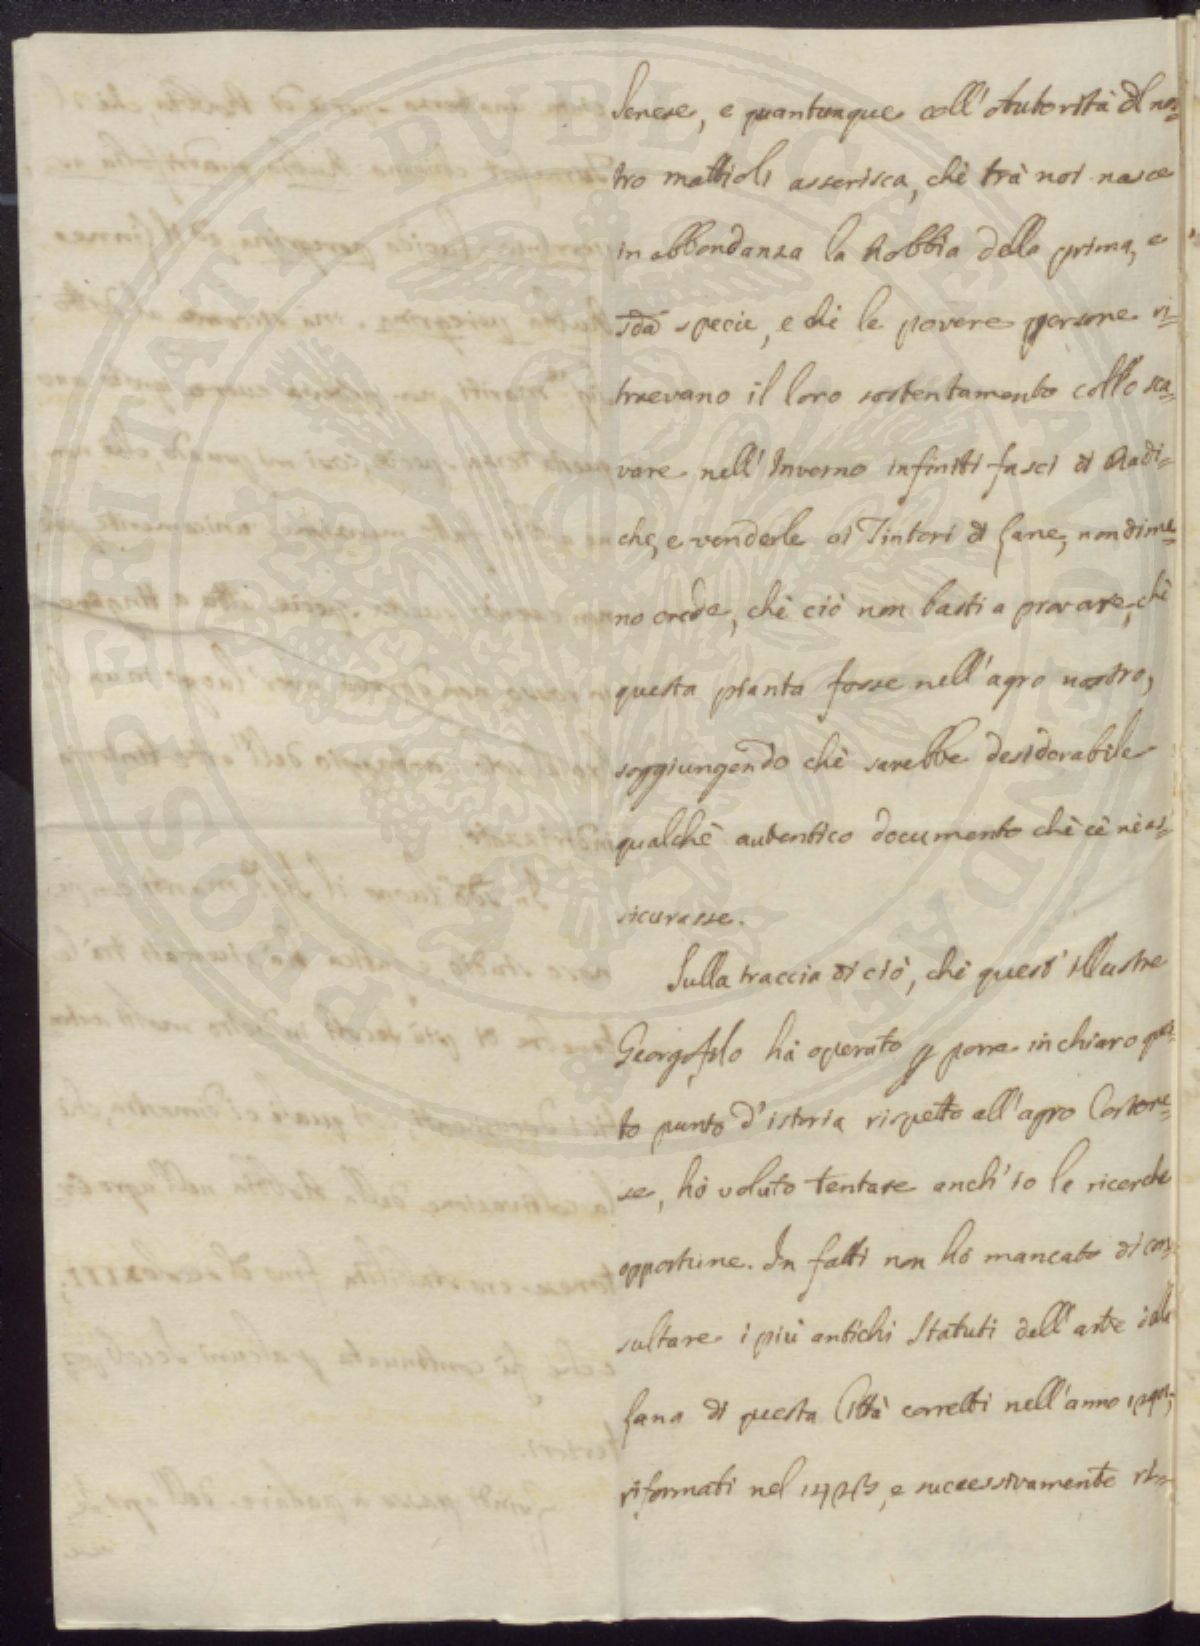 Senese, e quantunque coll'Autorità di nos=
tro Mattioli asserisca, chè trà noi nasce
in abbondanza la Robbia della prima, e
sda specie, e che le povere persone ri=
traevano il loro sostentamento collo sca=
vare nell'Inverno infiniti fasci di Radi=
che, e venderle ai Tintori di Lane, nondime=
no crede, chè ciò non basti a provare, chè
questa pianta fosse nell'agro nostro,
soggiungendo chè sarebbe desiderabile
qualchè autentico documento chè cè ne as=
sicurasse.
Sulla traccia di ciò, chè quest'illustre
Georgofilo hà operato p porre in chiaro ques=
to punto d'istoria rispetto all'agro Cortone=
se, hò voluto tentare anch'io le ricerche
opportune. In fatti non hò mancato di con=
sultare i più antichi Statuti dell'arte della
Lana di questa Città corretti nell'anno
riformati nel 1423, e successivamente
POSPERITATI PVBLICAE AVGENDAE